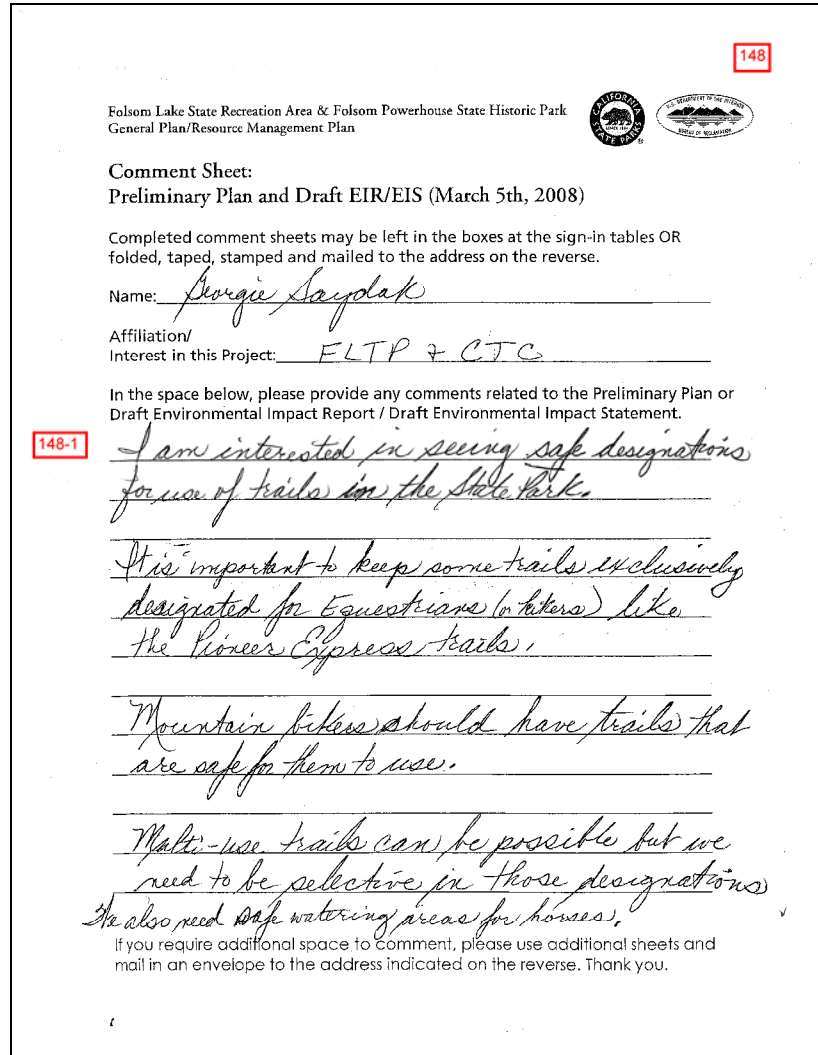 148
Folsom Lake State Recreation Area & Folsom Powerhouse State Historic Park
General Plan/Resource Management Plan
CALIFORNIA
STATE PARKS
SINCE 1864
U.S. DEPARTMENT OF THE INTERIOR
BUREAU OF RECLAMATION
Comment Sheet:
Preliminary Plan and Draft EIR/EIS (March 5th, 2008)
Completed comment sheets may be left in the boxes at the sign-in tables OR
folded, taped, stamped and mailed to the address on the reverse.
Name: Georgie Saydak
Affiliation/
Interest in this Project: FLTP & CTC
In the space below, please provide any comments related to the Preliminary Plan or
Draft Environmental Impact Report / Draft Environmental Impact Statement.
148-1
I am interested in seeing safe designations
for use of trails in the State Park.
It is important to keep some trails exclusively
designated for Equestrians (or hikers) like
the Pioneer Express trails.
Mountain bikers should have trails that
are safe for them to use.
Multi-use trails can be possible but we
need to be selective in those designations
We also need safe watering areas for horses.
If you require additional space to comment, please use additional sheets and
mail in an envelope to the address indicated on the reverse. Thank you.